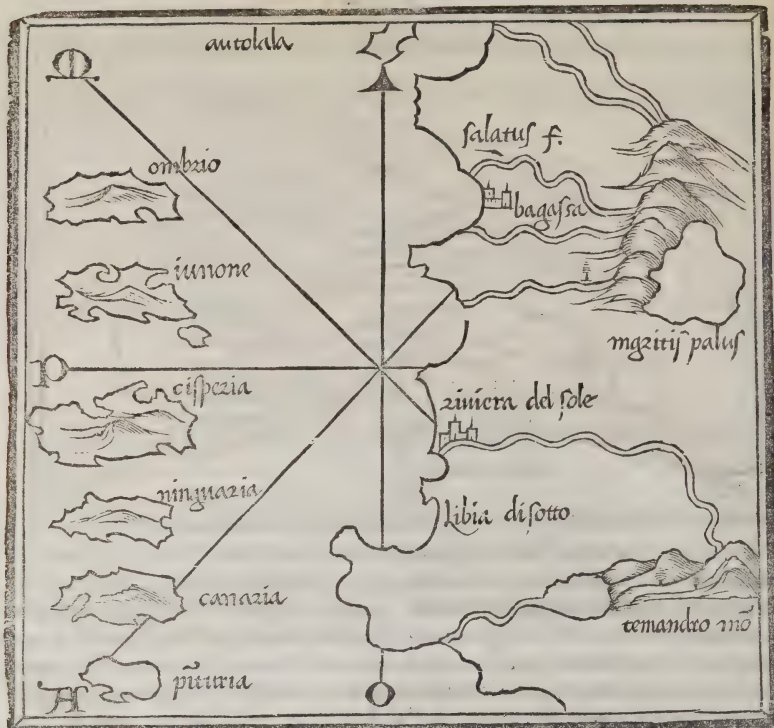 autolala
M
salatus f.
ombrio
bagassa
iunone
nigritis palus
P
cisperia
riviera del sole
ninguaria
libia disotto
canaria
temandro mõ
pituria
A
O